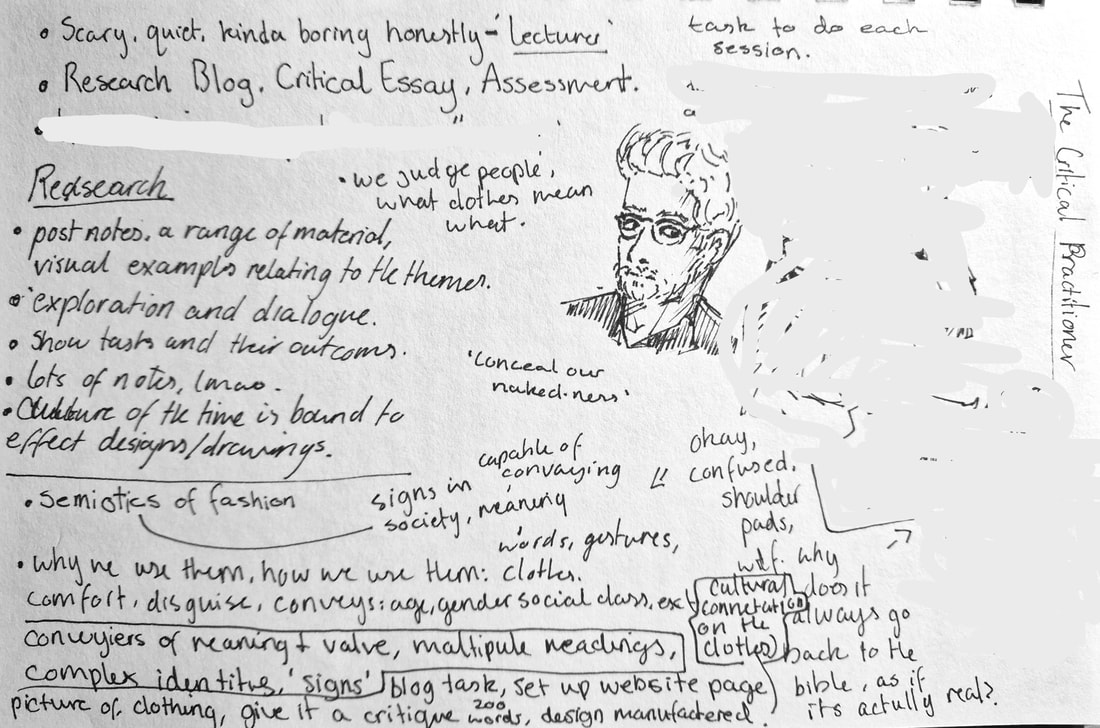 • Scary, quiet, kinda boring honestly - 'Lecturer'
• Research Blog, Critical Essay, Assessment.
task to do each
session.
The Critical Practitioner
Redsearch
• post notes. a range of material,
visual examples relating to the themes.
• 'exploration and dialogue.
• Show tasks and their outcoms.
• lots of notes, lmao.
• Culture of the time is bound to
effect designs/drawings.
• we judge people',
what clothes mean
what.
'Conceal our
naked-ness'
• Semiotics of fashion
signs in
society,
capable of
convaying
meaning
words, gestures,
okay,
confused.
shoulder
pads,
wtf. why
does it
always go
back to the
bible, as if
its actully real?
• why we use them, how we use them: clothes.
comfort, disguise, conveys: age, gender social class, ext
cultural
connetation
on the
clothes
conveyiers of meaning + valve, multipule readings,
complex identitus, 'signs' blog task, set up website page
picture of clothing, give it a critique 200 words, design manufactered.